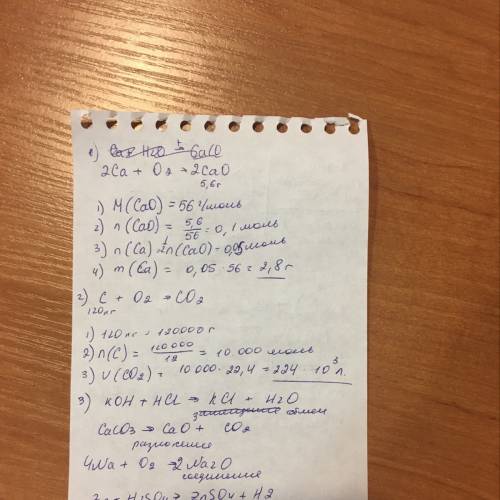 1) Ca + H2O =t CaO
2Ca + O2 → 2CaO
5,6г
1) M(CaO) = 56 г/моль
2) n(CaO) = 5,6/56 = 0,1 моль
3) n(Ca) = 1/2 n(CaO) = 0,05 моль
4) m(Ca) = 0,05 · 56 = 2,8 г
2) C + O2 → CO2
120 кг
1) 120 кг = 120000 г
2) n(C) = 120 000/12 = 10 000 моль
3) V(CO2) = 10 000 · 22,4 = 224 · 10³ л.
3) KOH + HCl → KCl + H2O
замещение обмен
CaCO3 → CaO + CO2
разложение
4Na + O2 → 2Na2O
соединение
Zn + H2SO4 → ZnSO4 + H2